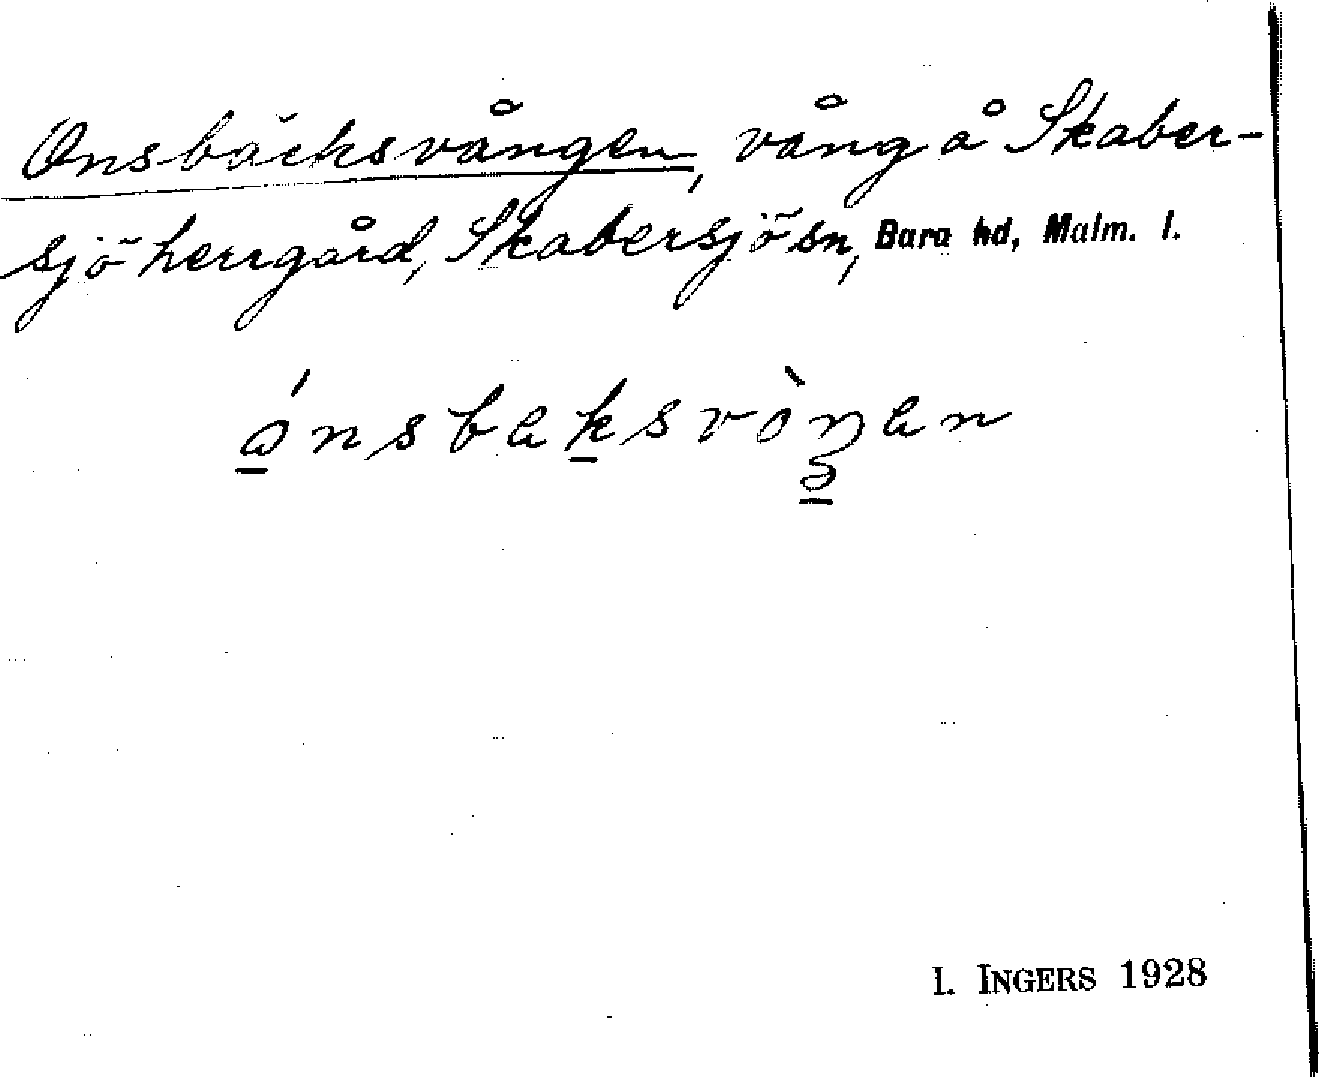 Onsbäcksvången, vång å Skaber-
sjö herrgård, Skabersjö sn, Bara hd, Malm. l.
ónsbaksvòŋan
ə
I. INGERS 1928